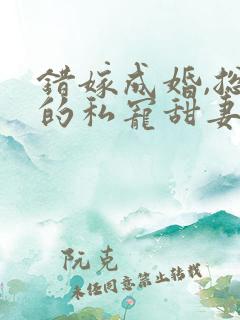 错嫁成婚,总
的私宠甜妻
阮克
未经同意禁止转载